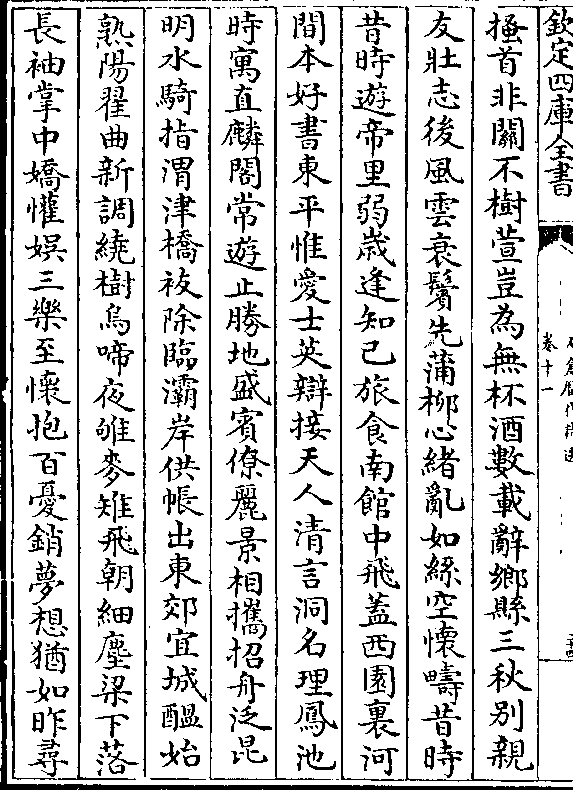 欽定四庫全書
卷十一
搔首非關不樹萱豈為無杯酒數載辭鄉縣三秋別親
友壯志後風雲衰鬢先蒲柳心緒亂如絲空懷疇昔時
昔時遊帝里弱歲逢知己旅食南館中飛蓋西園裏河
間本好書東平惟愛士英辯接天人清言洞名理鳳池
時寓直麟閣常遊止勝地盛賓僚麗景相攜招舟泛昆
明水騎指渭津橋祓除臨灞岸供帳出東郊宜城醖始
熟陽翟曲新調繞樹烏啼夜雊麥雉飛朝細塵梁下落
長袖掌中嬌懽娛三樂至懷抱百憂銷夢想猶如昨尋